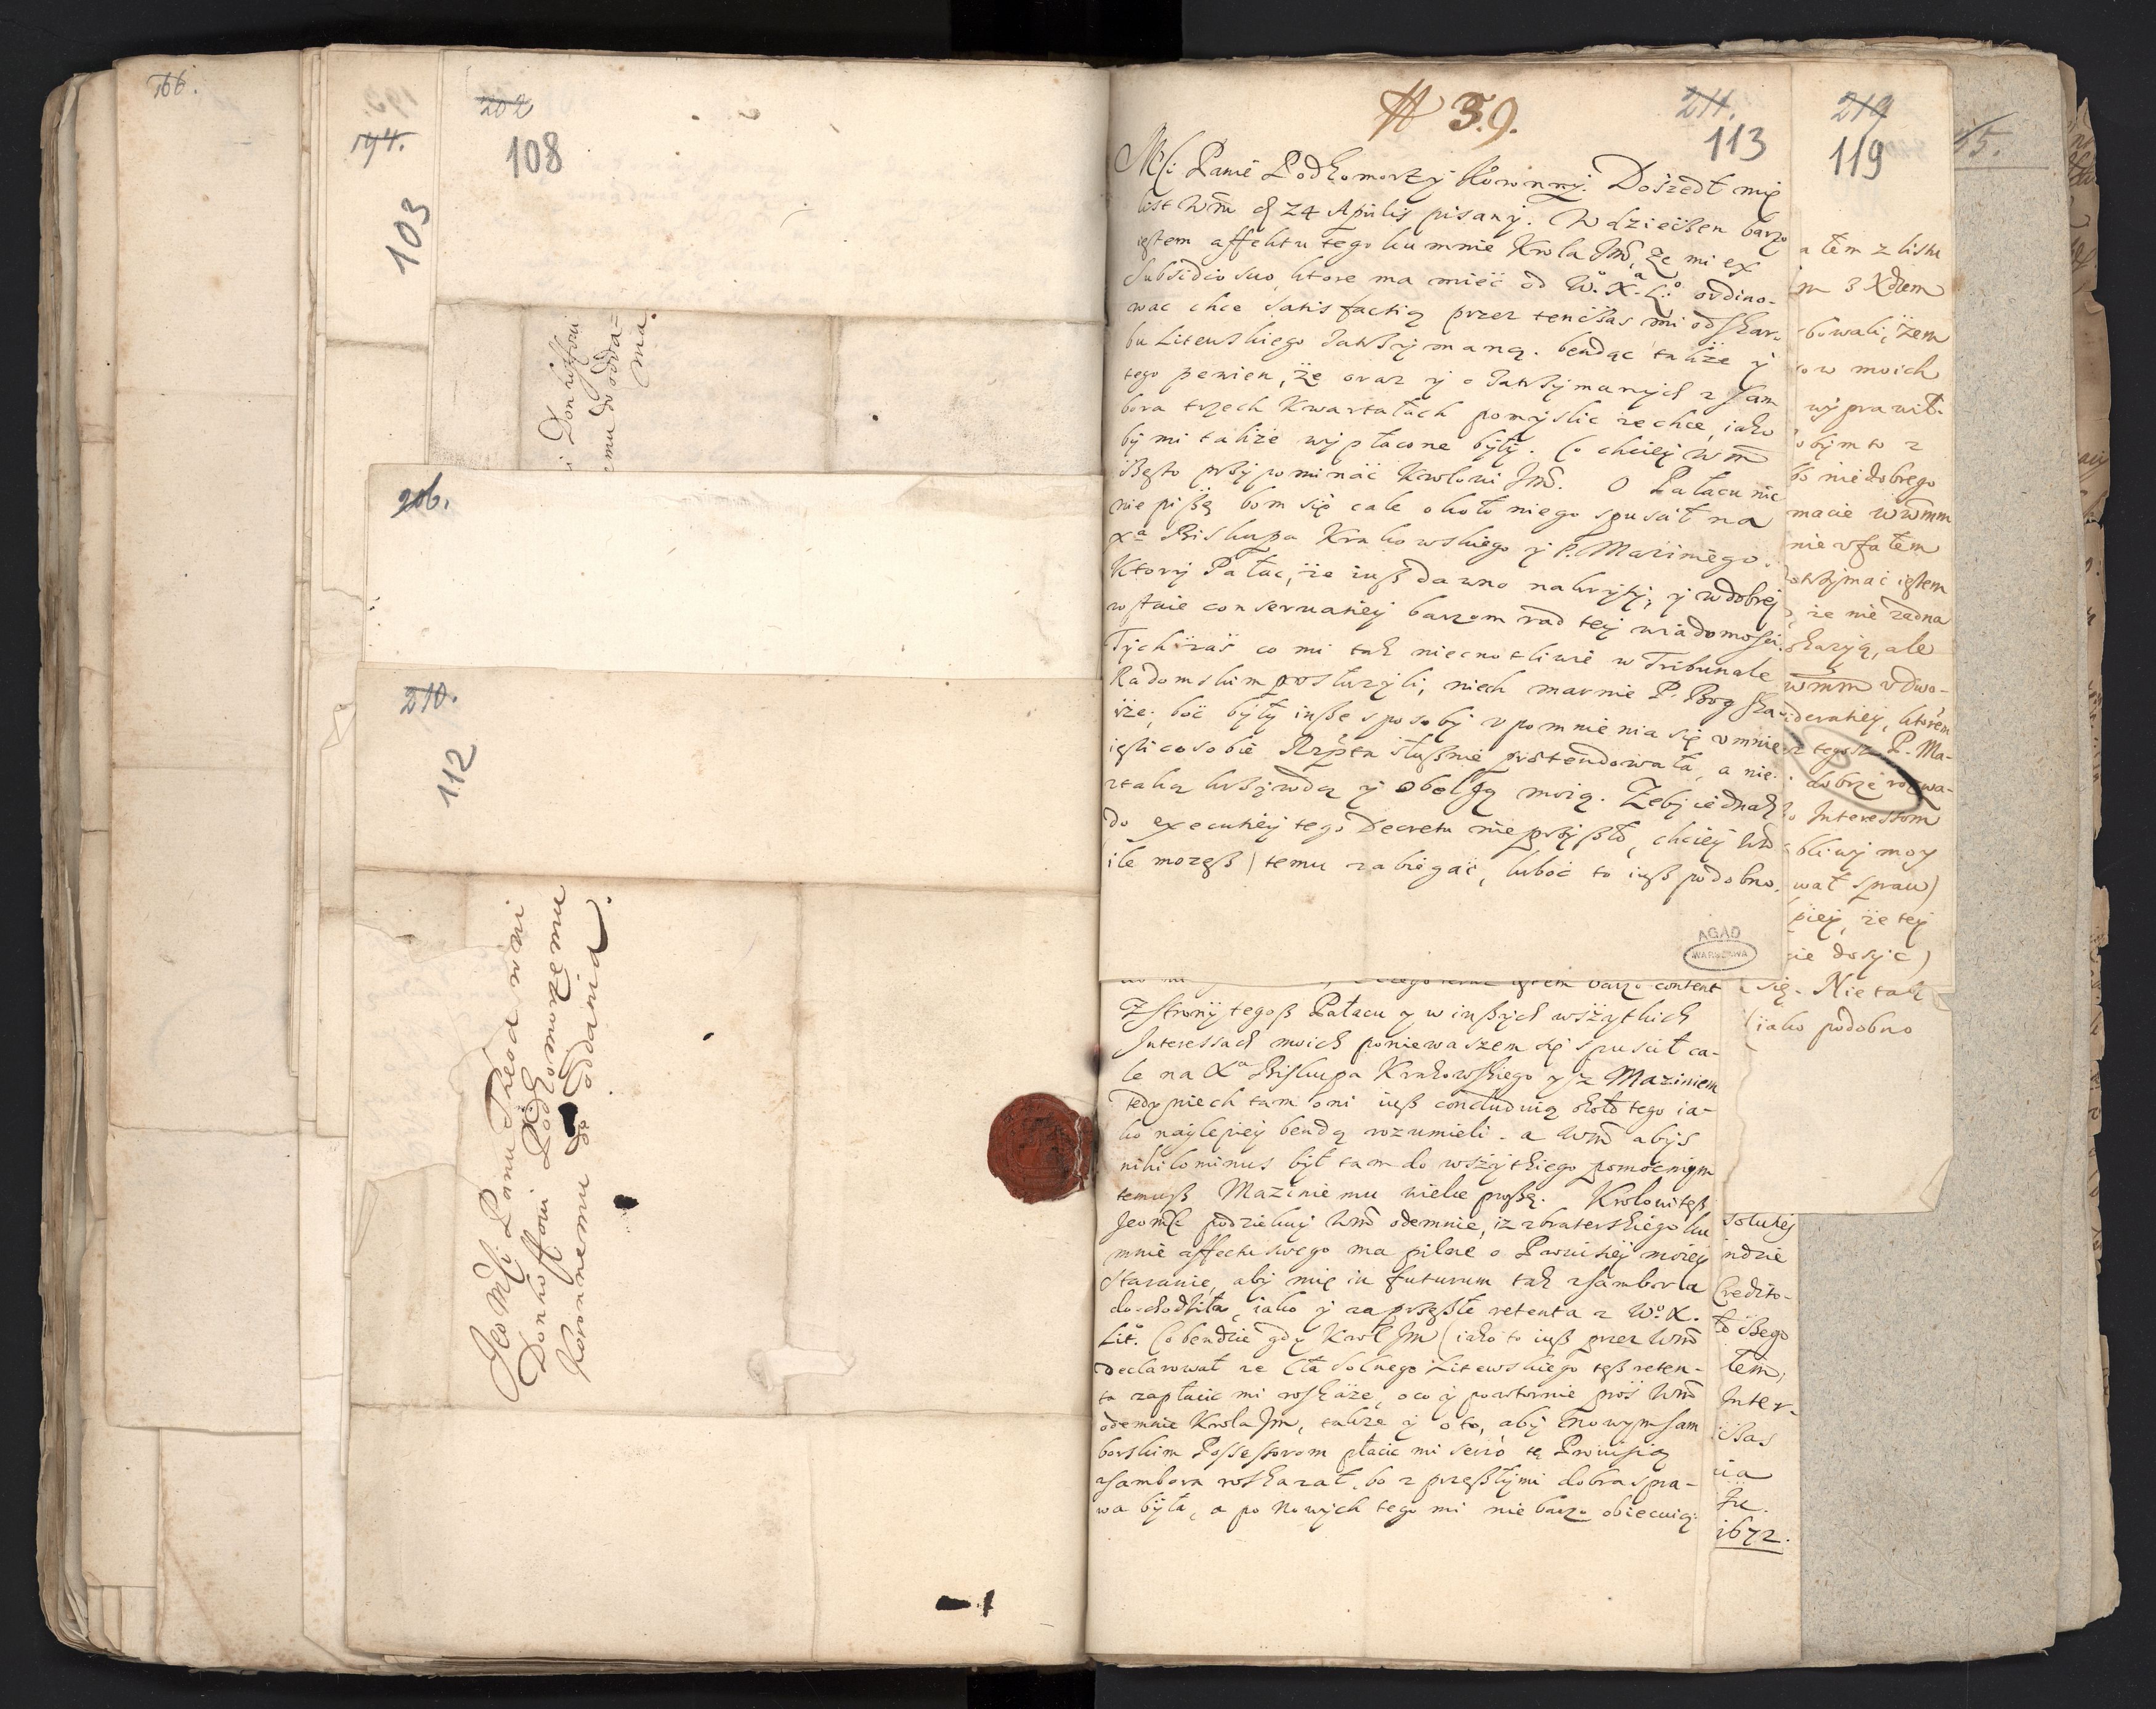 166.
194.
103
202
108
i Donhoffowi
emu do odda=
nia.
206.
210.
112
Jeo Mści Panu Theodorowi
Donhoffowi Podkomorzemu
Koronnemu do oddania.
№ 39.
211.
113
Mći Panie Podkomorzy Koronny. Doszedł mię
list Wm d 24 Aprilis pisany. Wdzięcżen barzo
iestem affektu tego ku mnie Krola Jm̃, że mi ex
subsidio suo, ktore ma mieć od Wº. Xª. Lº. ordino-
wac chce satisfactią przez tenćzas mi od skar-
bu Litewskiego zatrzymaną. bendąc takze y
tego pewien, że oraz y o zatrzymanych z Sam
bora trzech Kwartałach pomyslic zechce, iako
by mi takze wypłacone były. Co chciey Wm
często przypominać Krolowi Jm̃. O Pałacu nic
nie piszę bom się cale około niego spuscił na
Xª Biskupa Krakowskiego y P. Mazîniego.
Ktory Pałac, że iuß dawno nakryty, y w dobrej
zostaie conseruatiey barzom rad tey wiadomosci.
Tych zaś co mi tak niecnotliwie w Tribunale
Radomskim posłuzyli, niech marnie P. Bog ska-
rze; boć były inße sposoby vpomnienia się v mnie
iesli co sobie Rzpta słußnie prætendowała, a nie
z taką krzywdą y obelgą moią. Zeby iednak
do executiey tego Decretu nie przyßło, chciey Wm
ile mozeß) temu zabiegać, luboć to iuß podobno.
AGAD
WARSZAWA
iestem barzo content
Z strony tegoß Pałacu y w inßych wszytkich
Interessach moich poniewaszem się spuscił ca-
le na Xª Biskupa Krakowskiego y z Maziniem
Tedy niech tam oni iuß concluduią około tego ia-
ko naylepiey bendą rozumieli. a Wm̃ abys
nihilominus był tam do wszytkiego pomocnym
temuß Maziniemu wielce proßę. Krolowi teß
Jeomści podziekuy Wm̃ odemnie, iz z braterskiego ku
mnie affectu swego ma pilne o Prowisiey moiey
staranie, aby mię in futurum tak z Sambora
dochodziła, iako y za przeßłe retenta z Wº. X.
Litº. Co bendzie gdy Krol Jm (iako to iuß przez Wm̃
declarował ze Cła Solnego Litewskiego teß reten-
ta zapłacic mi roskaże, o co y powtornie proś Wm̃
odemnie Krola Jm, takze y o to, aby nowym Sam
borskim Possessorom płacic mi serio tę Prowisią
z Sambora roskazał. bo z przeßłymi dobra spra-
wa była, a po nowych tego mi nie barzo obiecuią
219
119
ałem z listu
m 3 Xdzem
bowali, żem
ow moich
wyprawił.
obym to z
bo nie dobrego
macie Wm̃m
nie vfałem
otrzymać iestem
, że nie żadna
skarzą, ale
Wm̃m v dwo-
deratiey, ktorem
z tegosz P. Ma-
dobrze rozwa-
o Interessom
bliwy moy
wał spraw)
piey, że tey
ie dosyc)
się. Nie tak
(iako podobno
solutiey
ndzie
Credito-
to ißego
łem,
Inter-
cßas
ia
1672.